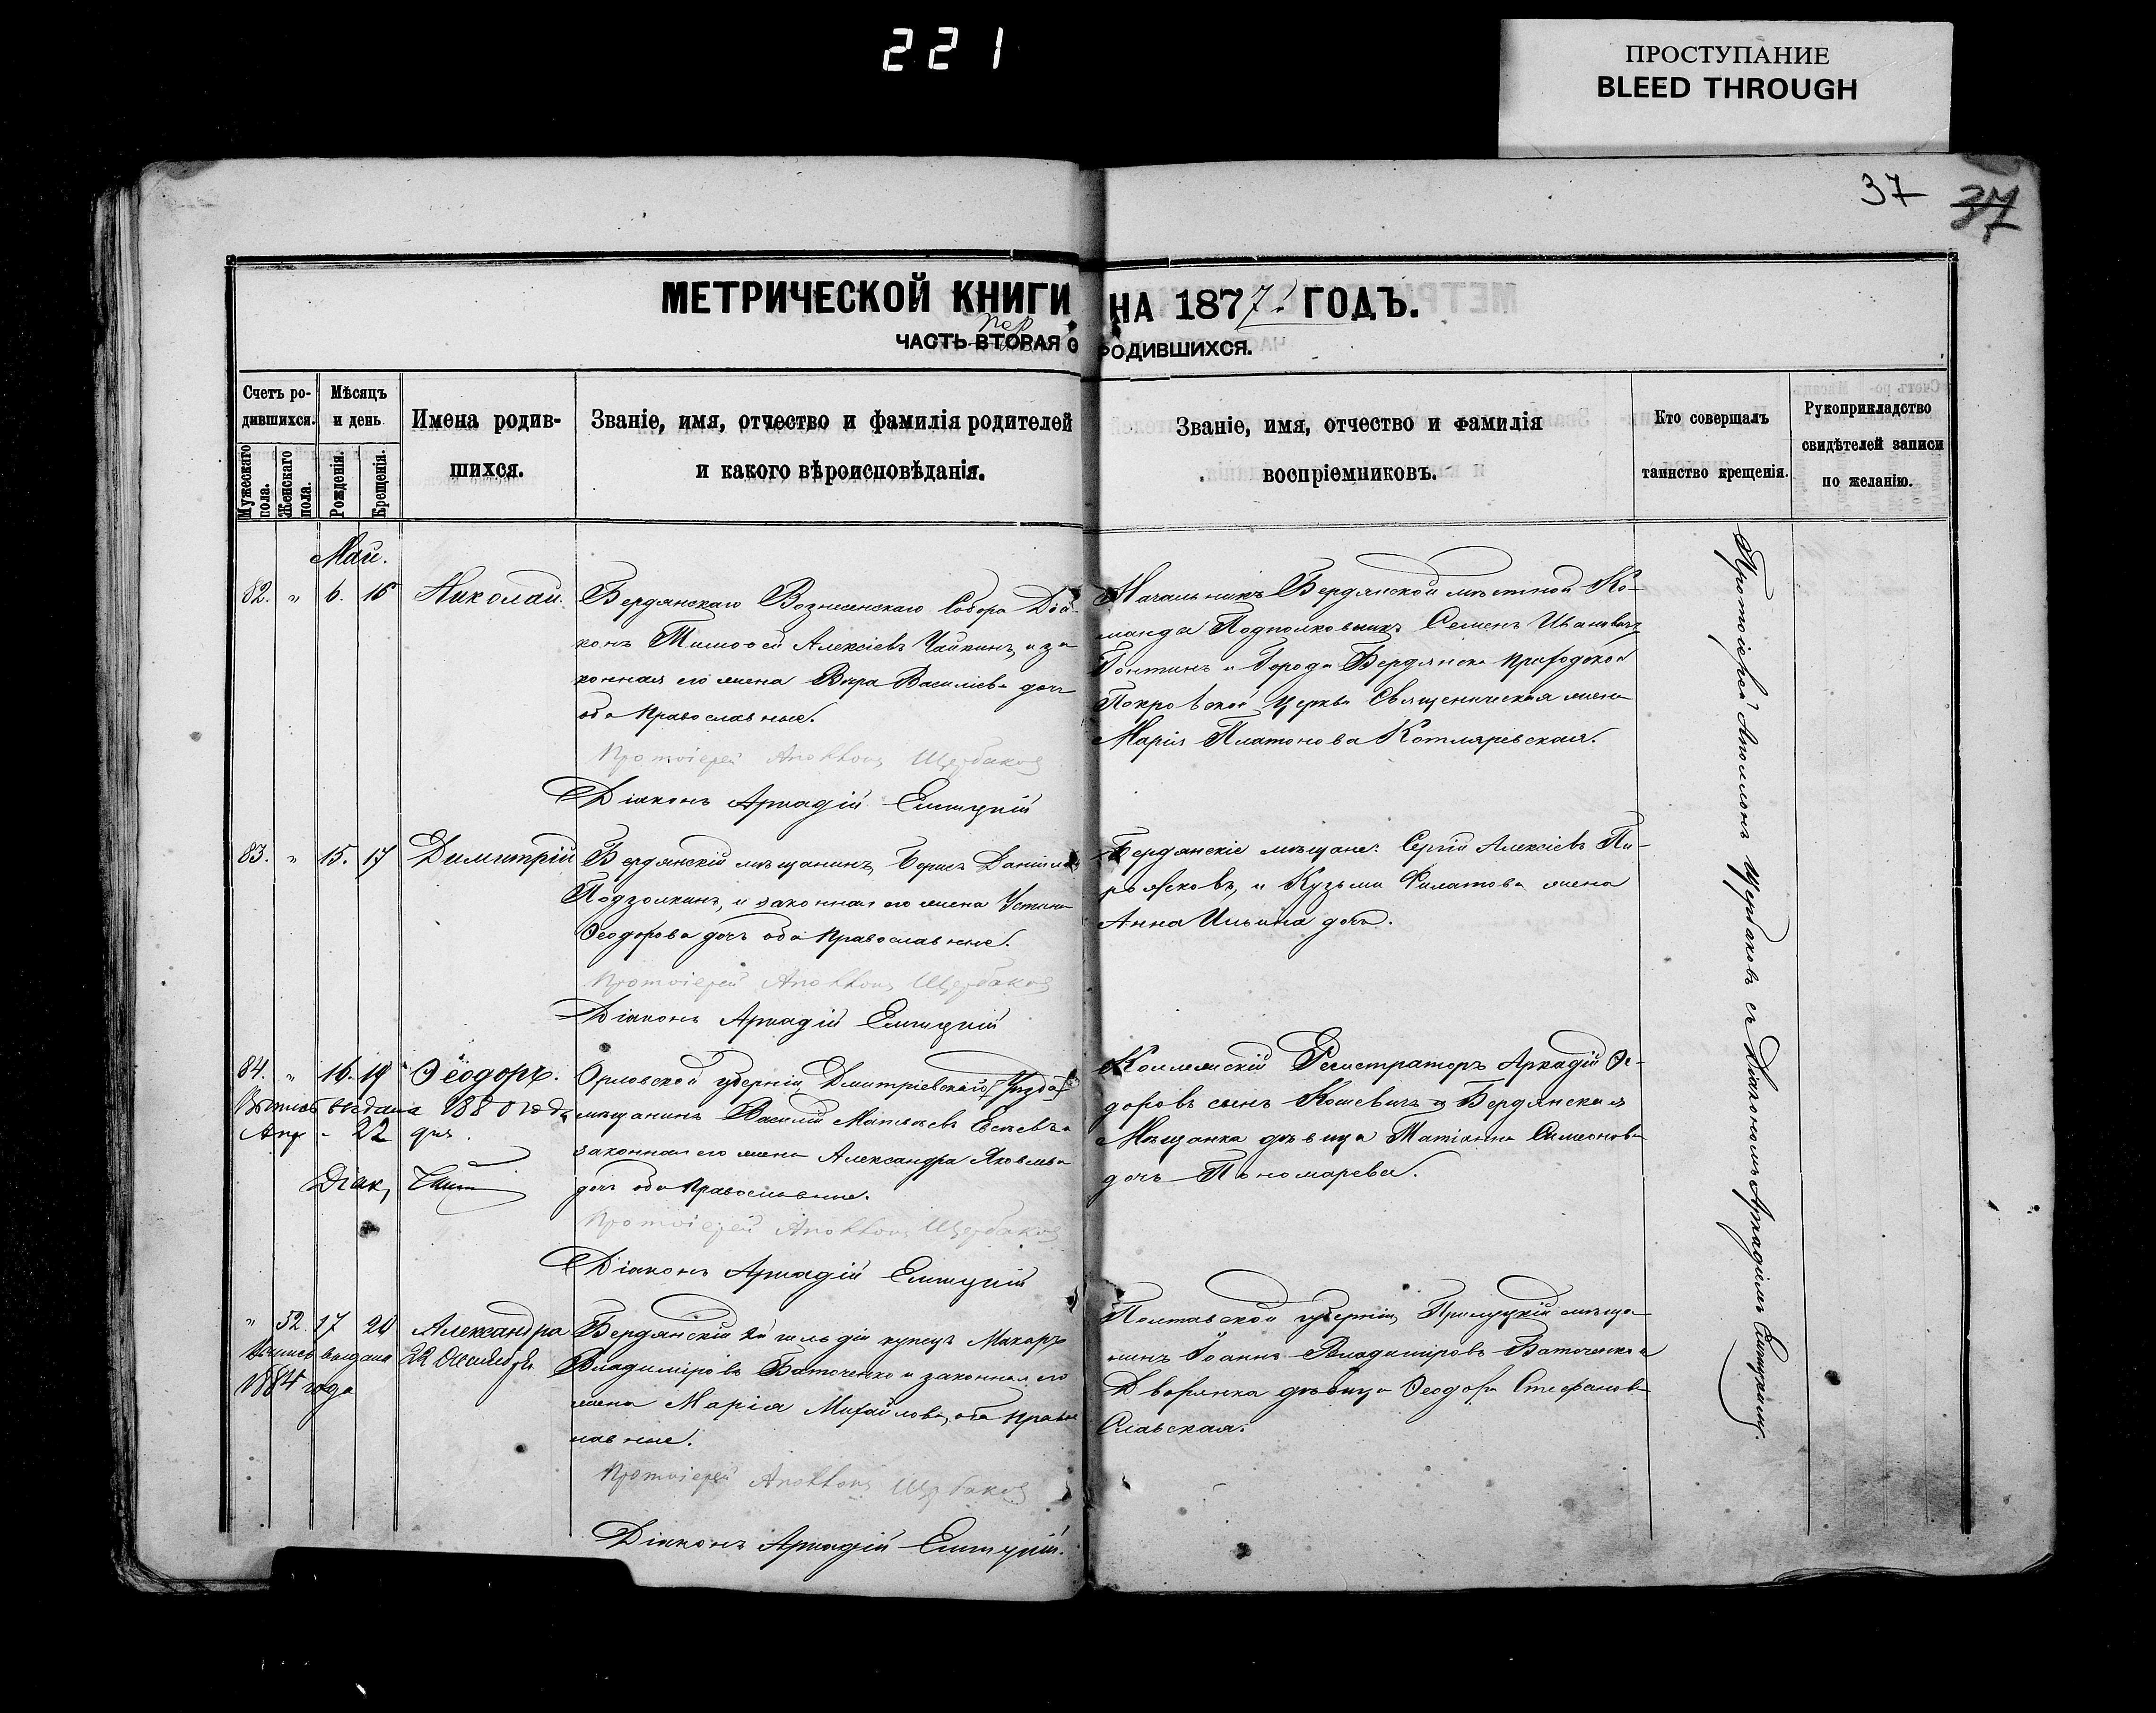 221
ПРОСТУПАНИЕ
BLEED THROUGH
37 37
МЕТРИЧЕСКОЙ КНИГИ НА 1877 ГОДЪ.
пер
ЧАСТЬ ВТОРАЯ О РОДИВШИХСЯ.
Счетъ ро-
дившихся.
Мужескаго пола.
Женскаго пола.
Мѣсяцъ
и день
Рожденія.
Крещенія.
Имена родив-
шихся.
Званіе, имя, отчество и фамилія родителей
и какого вѣроисповѣданія.
Званіе, имя, отчество и фамилія
воспріемниковъ.
Кто совершалъ
таинство крещенія.
Рукоприкладство
свидѣтелей записи
по желанію.
Май.
82. " 6. 16 Николай.
Бердянскаго Вознесенскаго Собора Діа-
конъ Тимоѳей Алексіевъ Чайкинъ, и за
конная его жена Вѣра Василіева дочь
оба Православные.
Протоіерей Аполлонъ Щербаковъ
Діаконъ Аркадій Елицкій
Начальникъ Бердянской мѣстной Ко-
манды Подполковникъ Семенъ Ивановъ
и Города Бердянска приходской
Покровской Церкви Священическая жена
Марія Платонова Котляревская.
83. " 15. 17 Димитрій
Бердянскій мѣщанинъ, Борисъ Даніиловъ
Подзолкинъ, и законная его жена Устинія
Ѳеодорова дочь оба Православные.
Протоіерей Аполлонъ Щербаковъ
Діаконъ Аркадій Елицкій
Бердянскіе мѣщане: Сергій Алексіевъ Пи-
и Кузьмы Филатова жена
Анна Ильина дочь.
84. " 16. 19 Ѳеодоръ.
Выпись выдана 1880 года
Апр. 22 дня.
Діак,
Орловской губерніи Дмитріевскаго Уѣзда
мѣщанинъ Василій Матвѣевъ Евсѣевъ и
законная его жена Александра Яковлева
дочь оба Православные.
Протоіерей Аполлонъ Щербаковъ
Діаконъ Аркадій Елицкій
Коллежскій Регистраторъ Аркадій Ѳе-
доровъ сынъ Кошевичъ и Бердянская
Мѣщанка дѣвица Татіанна Симеонова
дочь Пономарева.
" 52. 17 20 Александра
Выпись выдана 22 Октября
1884 года
Бердянскій 2й гильдіи купецъ Макаръ
Владиміровъ Баточенко и законная его
жена Марія Михайлова, оба Правос
лавные.
Протоіерей Аполлонъ Щербаковъ
Діаконъ Аркадій Елицкій.
Полтавской губерніи, Прилуцкій мѣща-
нинъ Іоаннъ Владиміровъ Баточенко и
Дворянка дѣвица Ѳеодора Стефанова
Славская.
Протоіерей Аполлонъ Щербаковъ съ Діакономъ Аркадіемъ Елицкимъ.